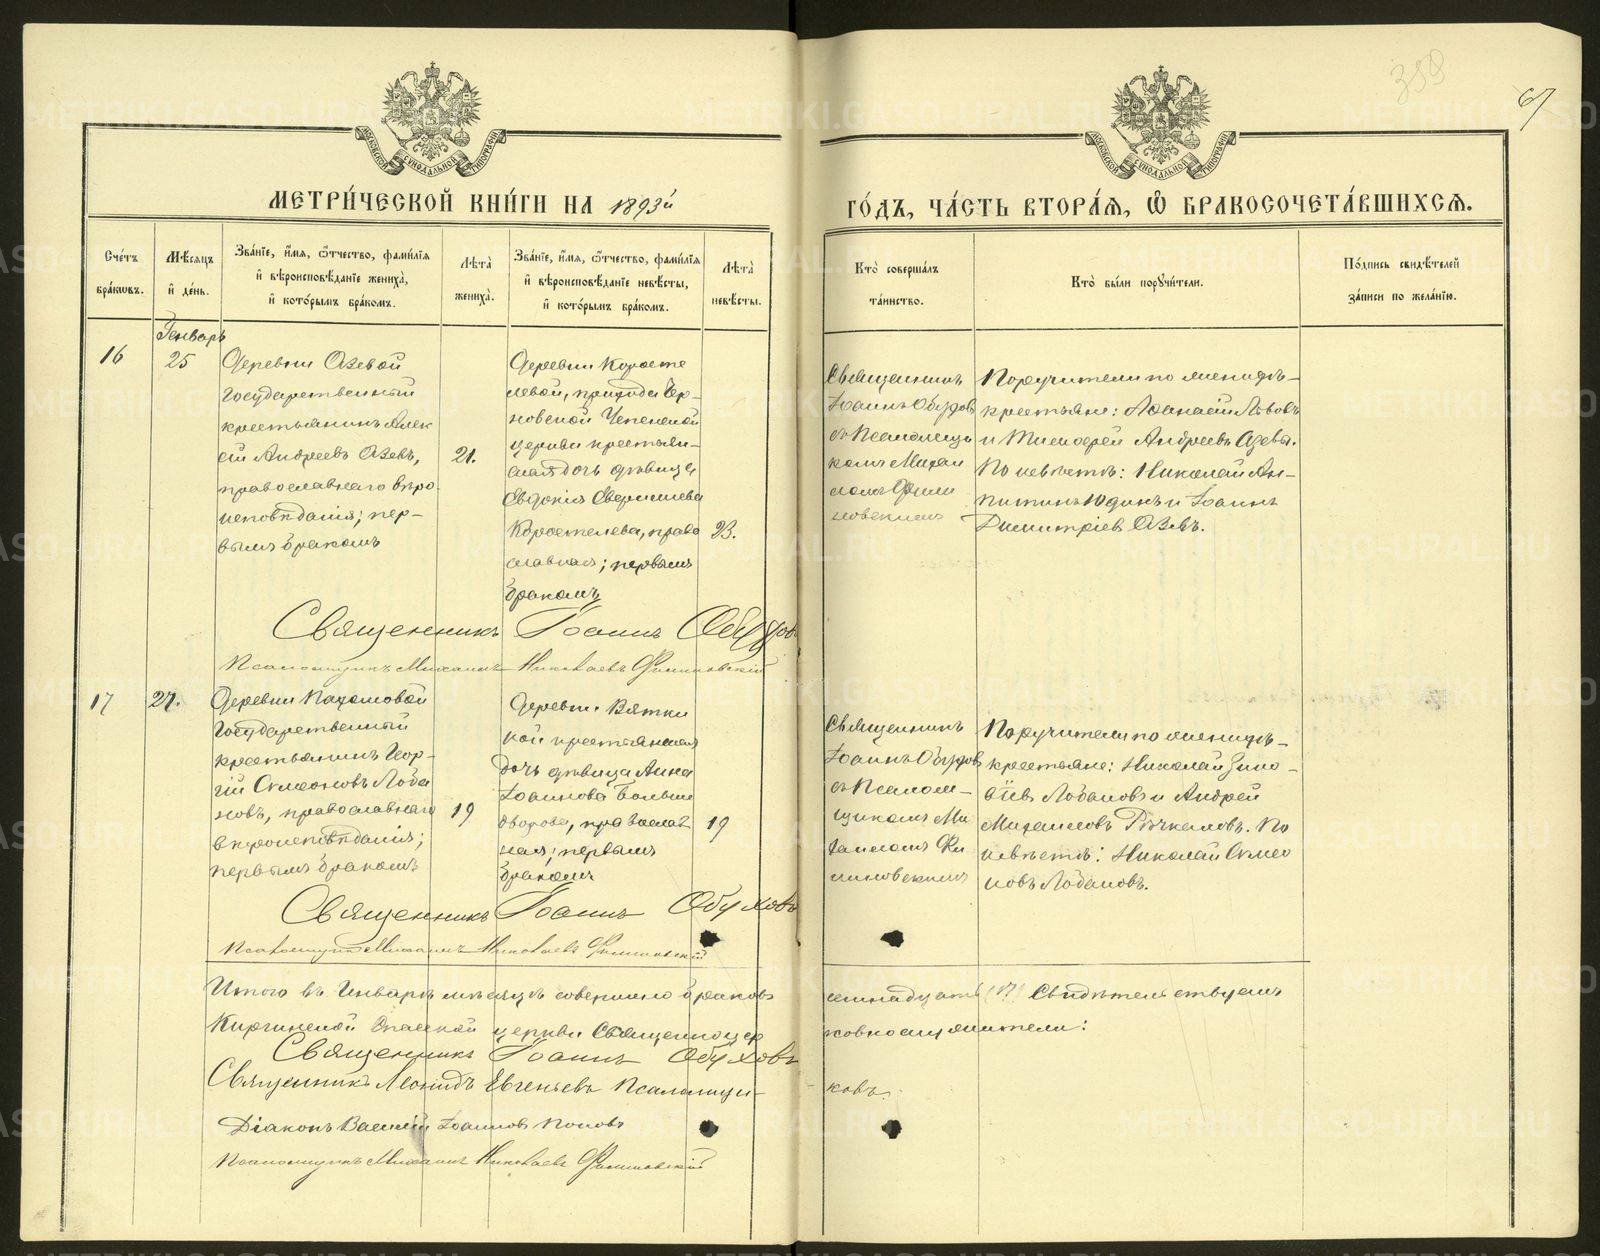 359
67
МОСКОВСКОЙ СУНОДАЛЬНОЙ ТИПОГРАФІИ
МОСКОВСКОЙ СУНОДАЛЬНОЙ ТИПОГРАФІИ
МЕТРИ́ЧЕСКОЙ КНИ́ГИ НА 1893й
ГО́ДЪ, ЧА́СТЬ ВТОРА́Я, Ѽ БРАКОСОЧЕТА́ВШИХСЯ.
Сче́тъ
бра́кѡвъ.
Мѣ́сяцъ
и҆ де́нь.
Зва́нїе, и҆́мя, ѻ҆́тчество, фами́лїя
и҆ вѣроисповѣ́данїе жениха̀,
и҆ кото́рымъ бра́комъ.
Лѣ́та̀
жениха̀.
Зва́нїе, и҆́мя, ѻ҆́тчество, фами́лїя
и҆ вѣроисповѣ́данїе невѣ́сты,
и҆ кото́рымъ бра́комъ.
Лѣ́та̀
невѣ́сты.
Кто̀ соверша́лъ
та́инство.
Кто̀ бы́ли поручи́тели.
По́дпись свидѣ́телей
за́писи по жела́нїю.
Генварь
16
25
Деревни Азевой
Государственный
крестьянинъ Алек
сій Андреевъ Азевъ,
православнаго вѣро
исповѣданія; пер-
вымъ бракомъ
21.
Деревни Коросте
левой, прихода Чер-
новской
церкви крестьян-
ская дочь дѣвица
Евдокія
Коростелева, право
славная; первымъ
бракомъ
23.
Священникъ
Іоаннъ Обухов
съ Псаломщи
комъ Михаи
ломъ Фили
новскимъ
Поручители по женихѣ-
крестьяне: Аѳанасій Львовъ
и Тимоѳей Андреевъ Азевы.
По невѣстѣ: Николай Ан-
Юдинъ и Іоаннъ
Димитріевъ Азевъ.
Священникъ Іоаннъ Обухов
Псаломщикъ Михаилъ Николаевъ Филиновскій
17
27.
Деревни Пахомовой
Государственный
крестьянинъ Геор-
гій Симеоновъ Лоба
новъ, православнаго
вѣроисповѣданія;
первымъ бракомъ
19
Деревни Вятки
ной крестьянская
дочь дѣвица Анна
Іоаннова Больше
дворова, православ
ная; первымъ
бракомъ
19
Священникъ
Іоаннъ Обухов
съ Псалом-
щикомъ Ми
хаиломъ Фи
линовскимъ
Поручители по женихѣ-
крестьяне: Николай Зино-
віевъ Лобановъ и Андрей
Михаиловъ Рычкаловъ. По
невѣстѣ: Николай Симео
новъ Лобановъ.
Священникъ Іоаннъ Обуховъ
Псаломщикъ Михаилъ Николаевъ Филиновскій
Итого въ Январѣ мѣсяцѣ совершено браковъ семнадцать (17) Свидѣтельствуемъ
Киргинской Спасской церкви Священноцерковнослужители:
Священникъ Іоаннъ Обуховъ
Священникъ Леонидъ Евгеньевъ Псаломщиковъ.
Діаконъ Василій Іоанновъ Поповъ
Псаломщикъ Михаилъ Николаевъ Филиновскій
METRIKI.GASO-URAL.RU